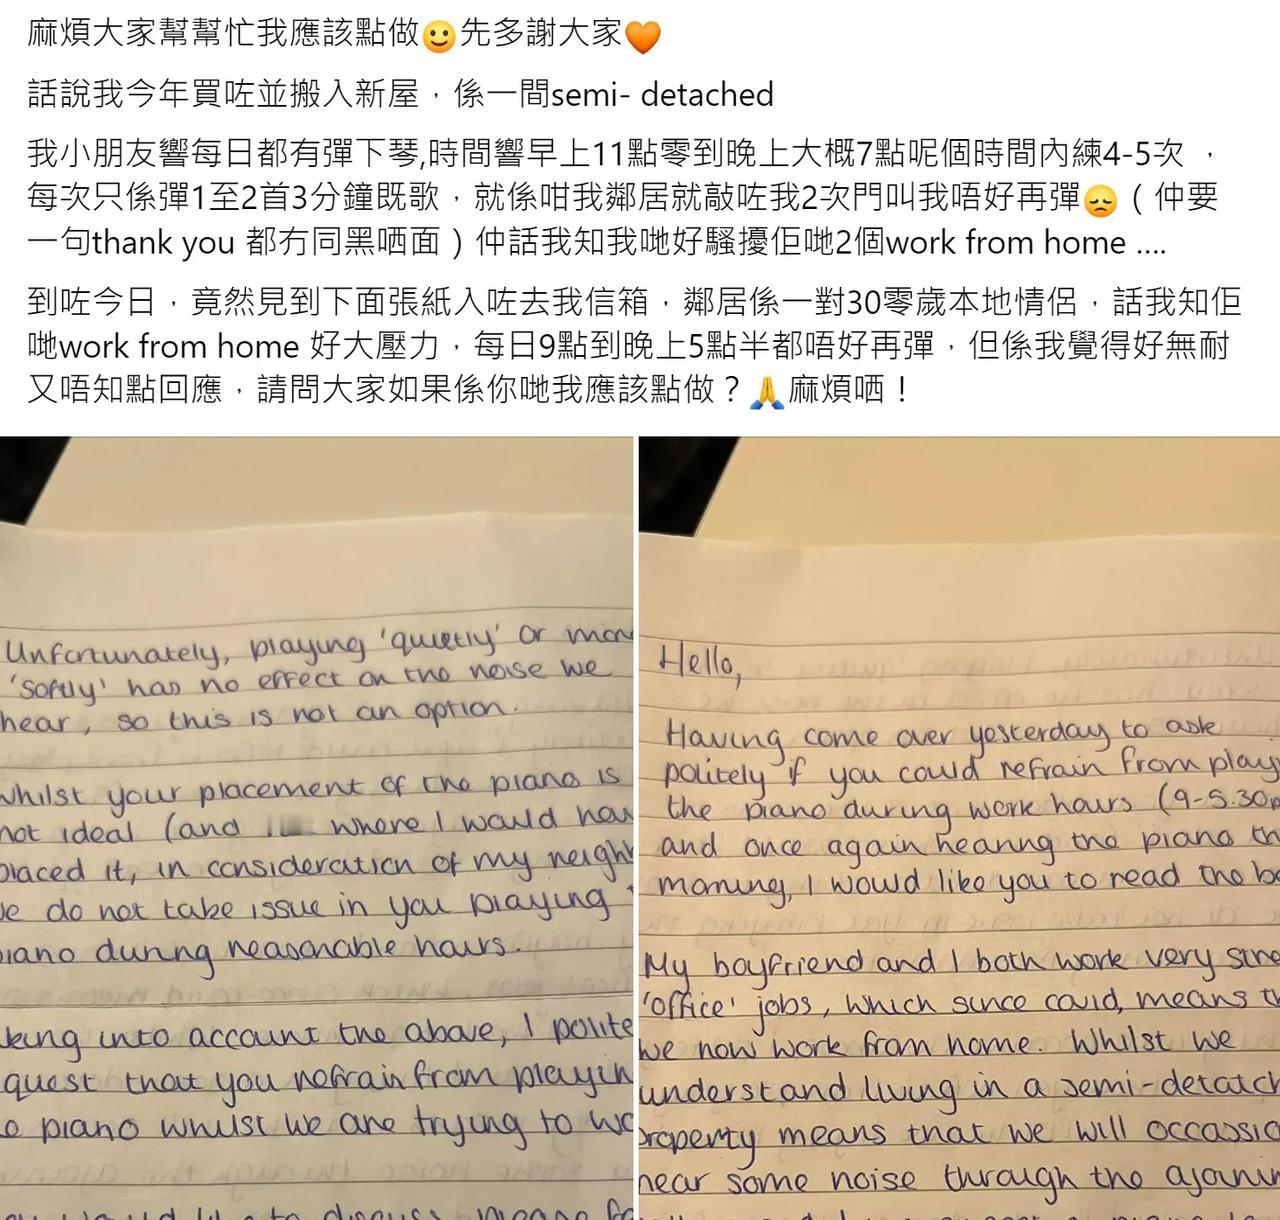 麻煩大家幫幫忙我應該點做🙂先多謝大家🧡
話說我今年買咗並搬入新屋，係一間semi- detached
我小朋友響每日都有彈下琴,時間響早上11點零到晚上大概7點呢個時間內練4-5次 ，
每次只係彈1至2首3分鐘既歌，就係咁我鄰居就敲咗我2次門叫我唔好再彈😞（仲要
一句thank you 都冇同黑哂面）仲話我知我哋好騷擾佢哋2個work from home ....
到咗今日，竟然見到下面張紙入咗去我信箱，鄰居係一對30零歲本地情侶，話我知佢
哋work from home 好大壓力，每日9點到晚上5點半都唔好再彈，但係我覺得好無耐
又唔知點回應，請問大家如果係你哋我應該點做？🙏麻煩哂！
Unfortunately, playing 'quietly' or
'softly' has no effect on the noise we
hear, so this is not an option.
whilst your placement of the piano is
not ideal (and where I would
placed it, in consideration of my
do not take issue in you playing
piano during reasonable hours.
into account the above, I
that you refrain from
piano whilst we are trying to
Hello,
Having come over yesterday to ask
politely if you could refrain from
the piano during work hours (9-5.30
and once again hearing the piano
morning, I would like you to read the
My boyfriend and I both work very
'office' jobs, which since covid, means
we now work from home. Whilst we
understand living in a semi-detatch
property means that we will
hear some noise through the